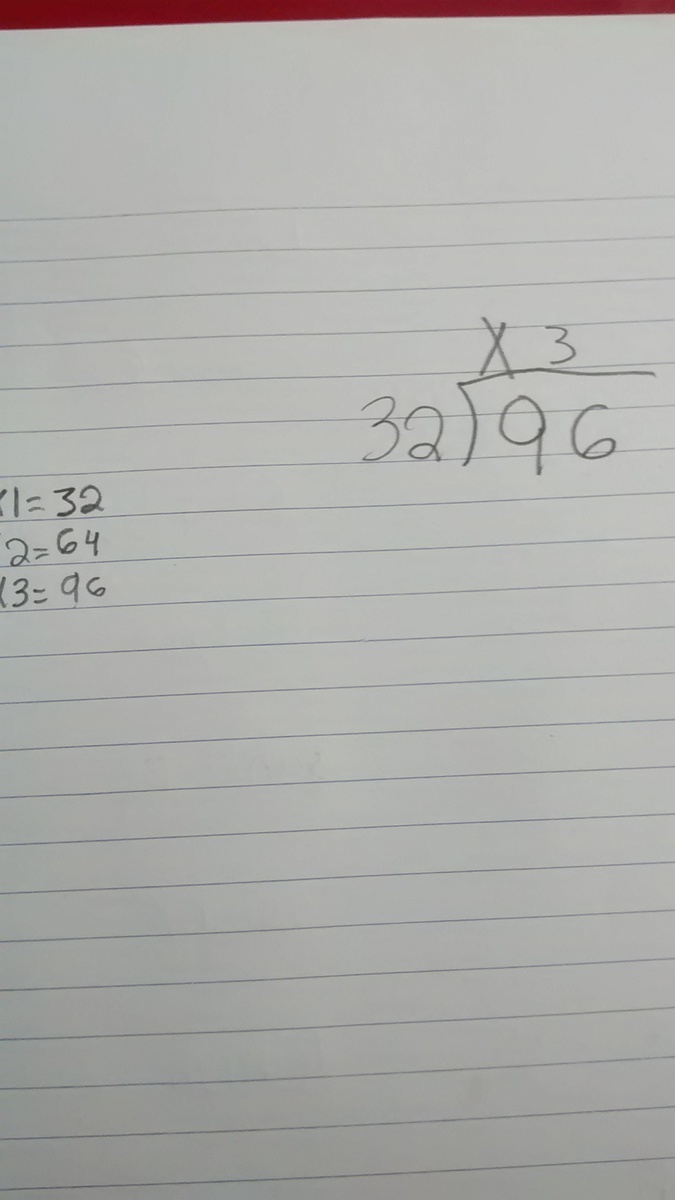 X 3
32)96
X1=32
2=64
X3=96